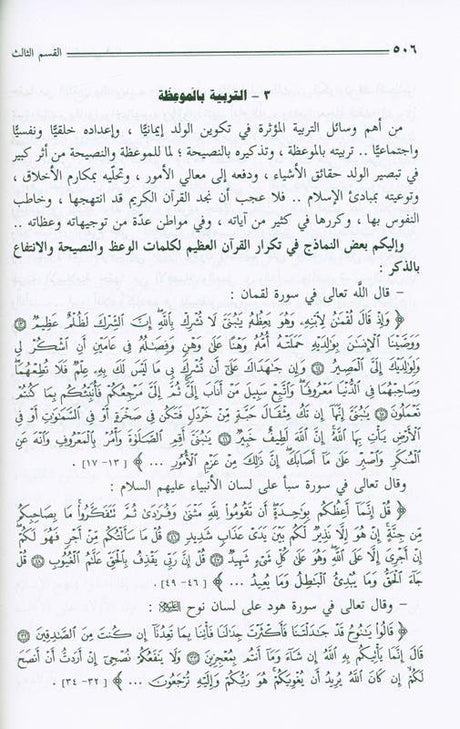 ٥٠٦ القسم الثالث
٣ - التربية بالموعظة
من أهم وسائل التربية المؤثرة في تكوين الولد إيمانيًّا ، وإعداده خلقيًّا ونفسيًّا
واجتماعيًّا .. تربيته بالموعظة ، وتذكيره بالنصيحة ؛ لما للموعظة والنصيحة من أثر كبير
في تبصير الولد حقائق الأشياء ، ودفعه إلى معالي الأمور ، وتحلّيه بمكارم الأخلاق ،
وتوعيته بمبادئ الإسلام .. فلا عجب أن نجد القرآن الكريم قد انتهجها ، وخاطب
النفوس بها ، وكررها في كثير من آياته ، وفي مواطن عدّة من توجيهاته وعظاته ..
وإليكم بعض النماذج في تكرار القرآن العظيم لكلمات الوعظ والنصيحة والانتفاع
بالذكر :
- قال اللَّه تعالى في سورة لقمان :
﴿ وَإِذْ قَالَ لُقْمَٰنُ لِٱبْنِهِۦ وَهُوَ يَعِظُهُۥ يَٰبُنَىَّ لَا تُشْرِكْ بِٱللَّهِ إِنَّ ٱلشِّرْكَ لَظُلْمٌ عَظِيمٌ ۝١٣
وَوَصَّيْنَا ٱلْإِنسَٰنَ بِوَٰلِدَيْهِ حَمَلَتْهُ أُمُّهُۥ وَهْنًا عَلَىٰ وَهْنٍ وَفِصَٰلُهُۥ فِى عَامَيْنِ أَنِ ٱشْكُرْ لِى
وَلِوَٰلِدَيْكَ إِلَىَّ ٱلْمَصِيرُ ۝١٤ وَإِن جَٰهَدَاكَ عَلَىٰٓ أَن تُشْرِكَ بِى مَا لَيْسَ لَكَ بِهِۦ عِلْمٌ فَلَا تُطِعْهُمَا
وَصَاحِبْهُمَا فِى ٱلدُّنْيَا مَعْرُوفًا وَٱتَّبِعْ سَبِيلَ مَنْ أَنَابَ إِلَىَّ ثُمَّ إِلَىَّ مَرْجِعُكُمْ فَأُنَبِّئُكُم بِمَا كُنتُمْ
تَعْمَلُونَ ۝١٥ يَٰبُنَىَّ إِنَّهَآ إِن تَكُ مِثْقَالَ حَبَّةٍ مِّنْ خَرْدَلٍ فَتَكُن فِى صَخْرَةٍ أَوْ فِى ٱلسَّمَٰوَٰتِ أَوْ فِى
ٱلْأَرْضِ يَأْتِ بِهَا ٱللَّهُ إِنَّ ٱللَّهَ لَطِيفٌ خَبِيرٌ ۝١٦ يَٰبُنَىَّ أَقِمِ ٱلصَّلَوٰةَ وَأْمُرْ بِٱلْمَعْرُوفِ وَٱنْهَ عَنِ
ٱلْمُنكَرِ وَٱصْبِرْ عَلَىٰ مَآ أَصَابَكَ إِنَّ ذَٰلِكَ مِنْ عَزْمِ ٱلْأُمُورِ ... ﴾ [ ١٣-١٧ ] .
وقال تعالى في سورة سبأ على لسان الأنبياء عليهم السلام :
﴿ قُلْ إِنَّمَآ أَعِظُكُم بِوَٰحِدَةٍ أَن تَقُومُوا۟ لِلَّهِ مَثْنَىٰ وَفُرَٰدَىٰ ثُمَّ تَتَفَكَّرُوا۟ مَا بِصَاحِبِكُم
مِّن جِنَّةٍ إِنْ هُوَ إِلَّا نَذِيرٌ لَّكُم بَيْنَ يَدَىْ عَذَابٍ شَدِيدٍ ۝٤٦ قُلْ مَا سَأَلْتُكُم مِّنْ أَجْرٍ فَهُوَ لَكُمْ
إِنْ أَجْرِىَ إِلَّا عَلَى ٱللَّهِ وَهُوَ عَلَىٰ كُلِّ شَىْءٍ شَهِيدٌ ۝٤٧ قُلْ إِنَّ رَبِّى يَقْذِفُ بِٱلْحَقِّ عَلَّٰمُ ٱلْغُيُوبِ ۝٤٨ قُلْ
جَآءَ ٱلْحَقُّ وَمَا يُبْدِئُ ٱلْبَٰطِلُ وَمَا يُعِيدُ ... ﴾ [ ٤٦-٤٩ ] .
- وقال تعالى في سورة هود على لسان نوح :
﴿ قَالُوا۟ يَٰنُوحُ قَدْ جَٰدَلْتَنَا فَأَكْثَرْتَ جِدَٰلَنَا فَأْتِنَا بِمَا تَعِدُنَآ إِن كُنتَ مِنَ ٱلصَّٰدِقِينَ ۝٣٢
قَالَ إِنَّمَا يَأْتِيكُم بِهِ ٱللَّهُ إِن شَآءَ وَمَآ أَنتُم بِمُعْجِزِينَ ۝٣٣ وَلَا يَنفَعُكُمْ نُصْحِىٓ إِنْ أَرَدتُّ أَنْ أَنصَحَ
لَكُمْ إِن كَانَ ٱللَّهُ يُرِيدُ أَن يُغْوِيَكُمْ هُوَ رَبُّكُمْ وَإِلَيْهِ تُرْجَعُونَ ... ﴾ [ ٣٢-٣٤ ] .